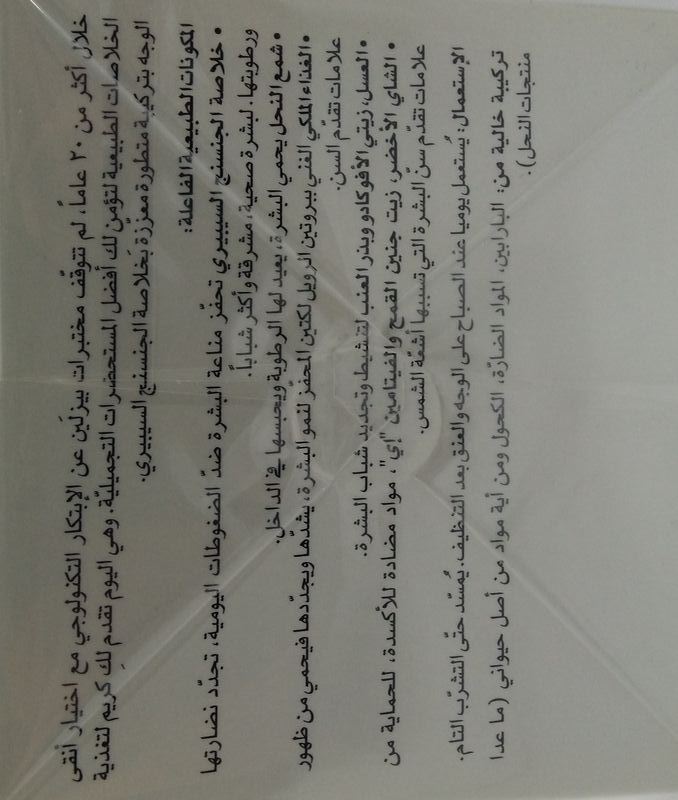 خلال أكثر من ٢٠ عاماً، لم تتوقّف مختبرات بيزلين عن الإبتكار التكنولوجي مع اختيار أنقى
الخلاصات الطبيعية لتؤمن لك أفضل المستحضرات التجميليّة. وهي اليوم تقدم لكِ كريم لتغذية
الوجه بتركيبة متطورة معزّزة بخلاصة الجنسنج السيبيري.
المكونات الطبيعية الفاعلة:
• خلاصة الجنسنج السيبيري تحفّز مناعة البشرة ضدّ الضغوطات اليومية، تجدّد نضارتها
ورطوبتها. لبشرة صحية، مشرقة وأكثر شباباً.
• شمع النحل يحمي البشرة، يعيد لها الرطوبة ويحبسها في الداخل.
• الغذاء الملكي الغني ببروتين الرويل لكتين المحفّز لنمو البشرة، يشدّها ويجدّدها فيحمي من ظهور
علامات تقدّم السن.
• العسل، زيتي الأفوكادو وبذر العنب لتنشيط وتجديد شباب البشرة.
• الشاي الأخضر، زيت جنين القمح والفيتامين "إي"، مواد مضادة للأكسدة، للحماية من
علامات تقدّم سنّ البشرة التي تسببها أشعّة الشمس.
الإستعمال: يُستعمل يوميا عند الصباح على الوجه والعنق بعد التنظيف. يُمسّد حتّى التشرّب التام.
تركيبة خالية من: البارابين، المواد الضارّة، الكحول ومن أية مواد من أصل حيواني (ما عدا
منتجات النحل).